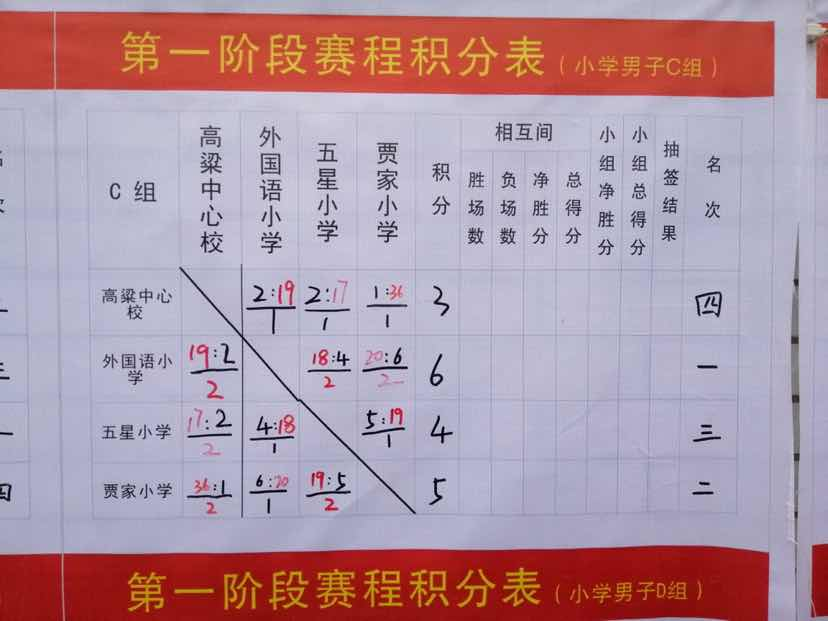 第一阶段赛程积分表（小学男子C组）
C 组 高粱中心校 外国语小学 五星小学 贾家小学 积分 相互间 胜场数 负场数 净胜分 总得分 小组净胜分 小组总得分 抽签结果 名次
高粱中心校 2:19 2:17 1:36 3 四
1 1 1
外国语小学 19:2 18:4 20:6 6 一
2 2 2
五星小学 17:2 4:18 5:19 4 三
2 1 1
贾家小学 36:1 6:20 19:5 5 二
2 1 2
第一阶段赛程积分表（小学男子D组）